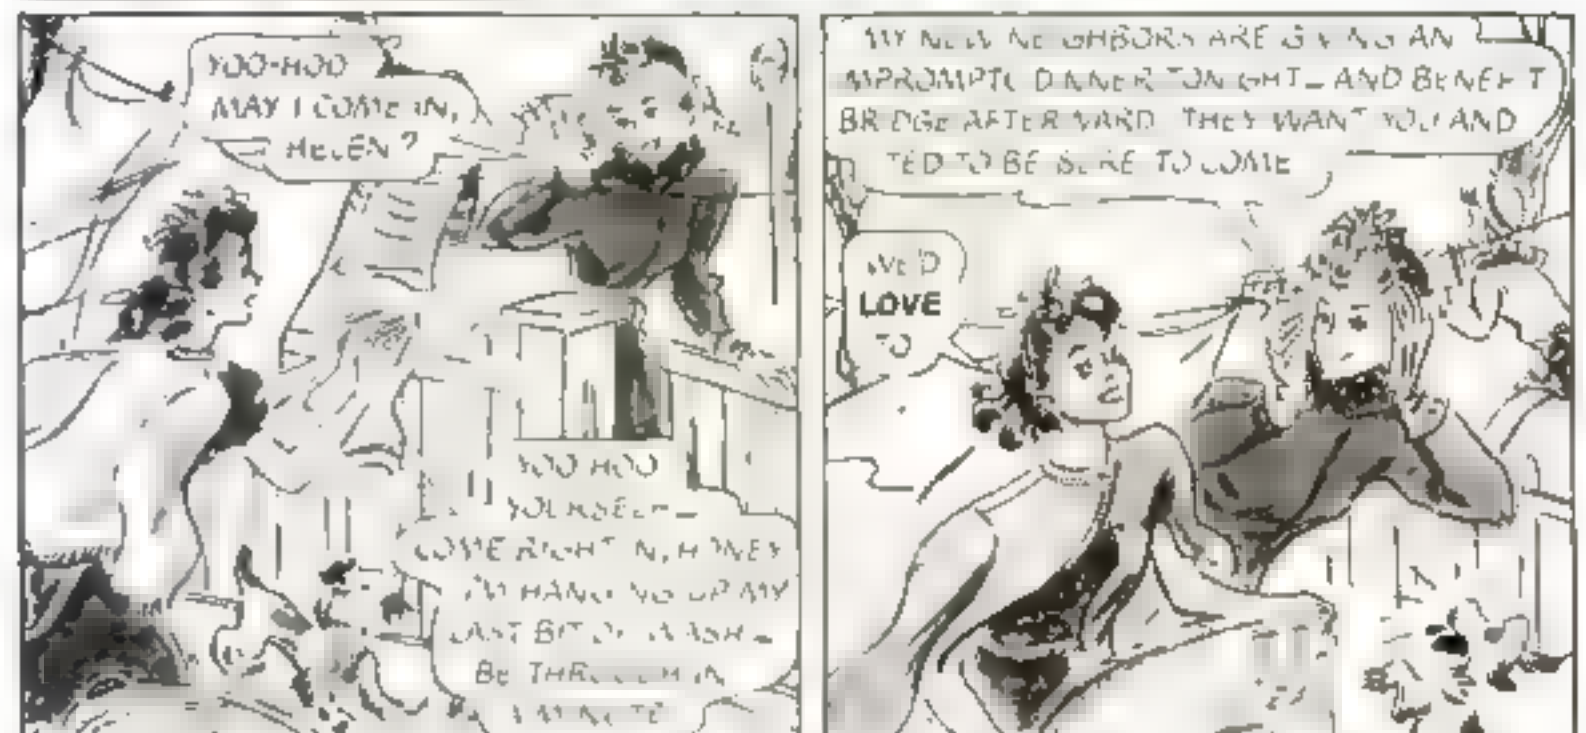 YOO-HOO
MAY I COME IN,
HELEN?
YOO HOO
YOURSELF—
COME RIGHT IN, HONEY
I'M HANGING UP MY
LAST BIT OF WASH—
BE THROUGH IN
A MINUTE
MY NEW NEIGHBORS ARE GIVING AN
IMPROMPTU DINNER TONIGHT— AND BENEFIT
BRIDGE AFTERWARD. THEY WANT YOU AND
TED TO BE SURE TO COME
WE'D
LOVE
TO